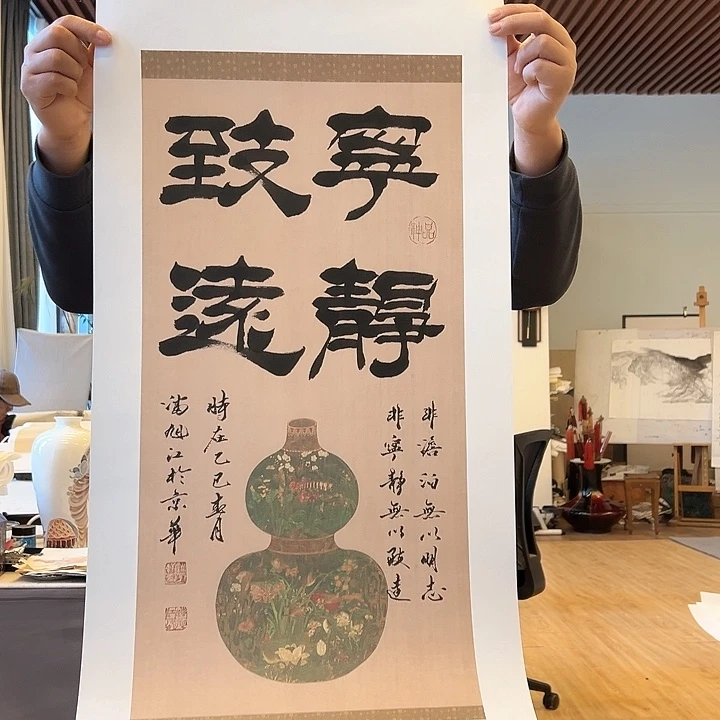 寧靜
致遠
非澹泊無以明志
非寧靜無以致遠
時在乙巳春月
潘旭江於京華
神品